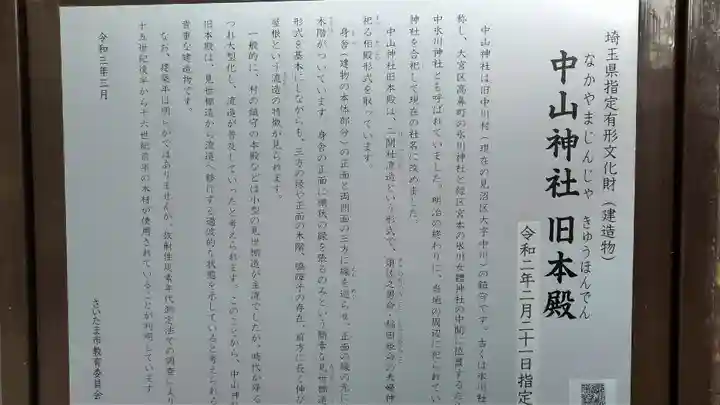 埼玉県指定有形文化財（建造物）
なかやまじんじゃ きゅうほんでん
中山神社 旧本殿
令和二年二月二十一日指定
中山神社は旧中川村（現在の見沼区大字中川）の鎮守です。古くは氷川社
称し、大宮区高鼻町の氷川神社と緑区宮本の氷川女體神社の中間に位置するため
中氷川神社とも呼ばれていました。明治の終わりに、当地の周辺に祀られてい
神社を合祀して現在の社名に改めました。
中山神社旧本殿は、二間社見世棚造という形式で、須佐之男命・稲田姫命の夫婦神
祀る相殿形式を取っています。
身舎（建物の本体部分）の正面と両側面の三方に縁を巡らせ、正面の縁の先に
木階がついています 身舎の正面に横状の縁を張るのみという簡素な見世棚造
形式を基本にしながらも、三方の縁や正面の木階、脇障子の存在、前方に長く伸び
屋根という流造の特徴が見られます。
一般的に、村の鎮守の本殿などは小型の見世棚造が主流でしたが、時代が降る
つれ大型化し、流造が普及していったと考えられます。このことから、中山神社
旧本殿は、見世棚造から流造へ移行する過渡的な状態を示していると考えられる
貴重な建造物です。
なお、建築年は明らかではありませんが、放射性炭素年代測定法での調査により
十五世紀後半から十六世紀前半の木材が使用されていることが判明しています
令和三年三月
さいたま市教育委員会